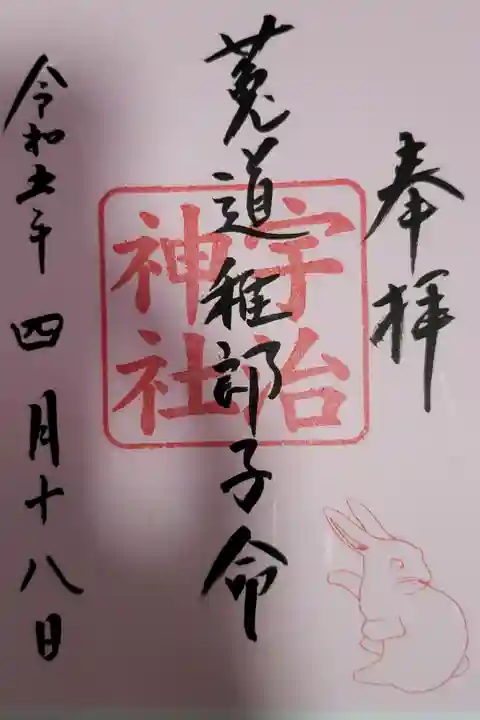 奉拝
菟道稚郎子命
宇治
神社
令和五年四月十八日